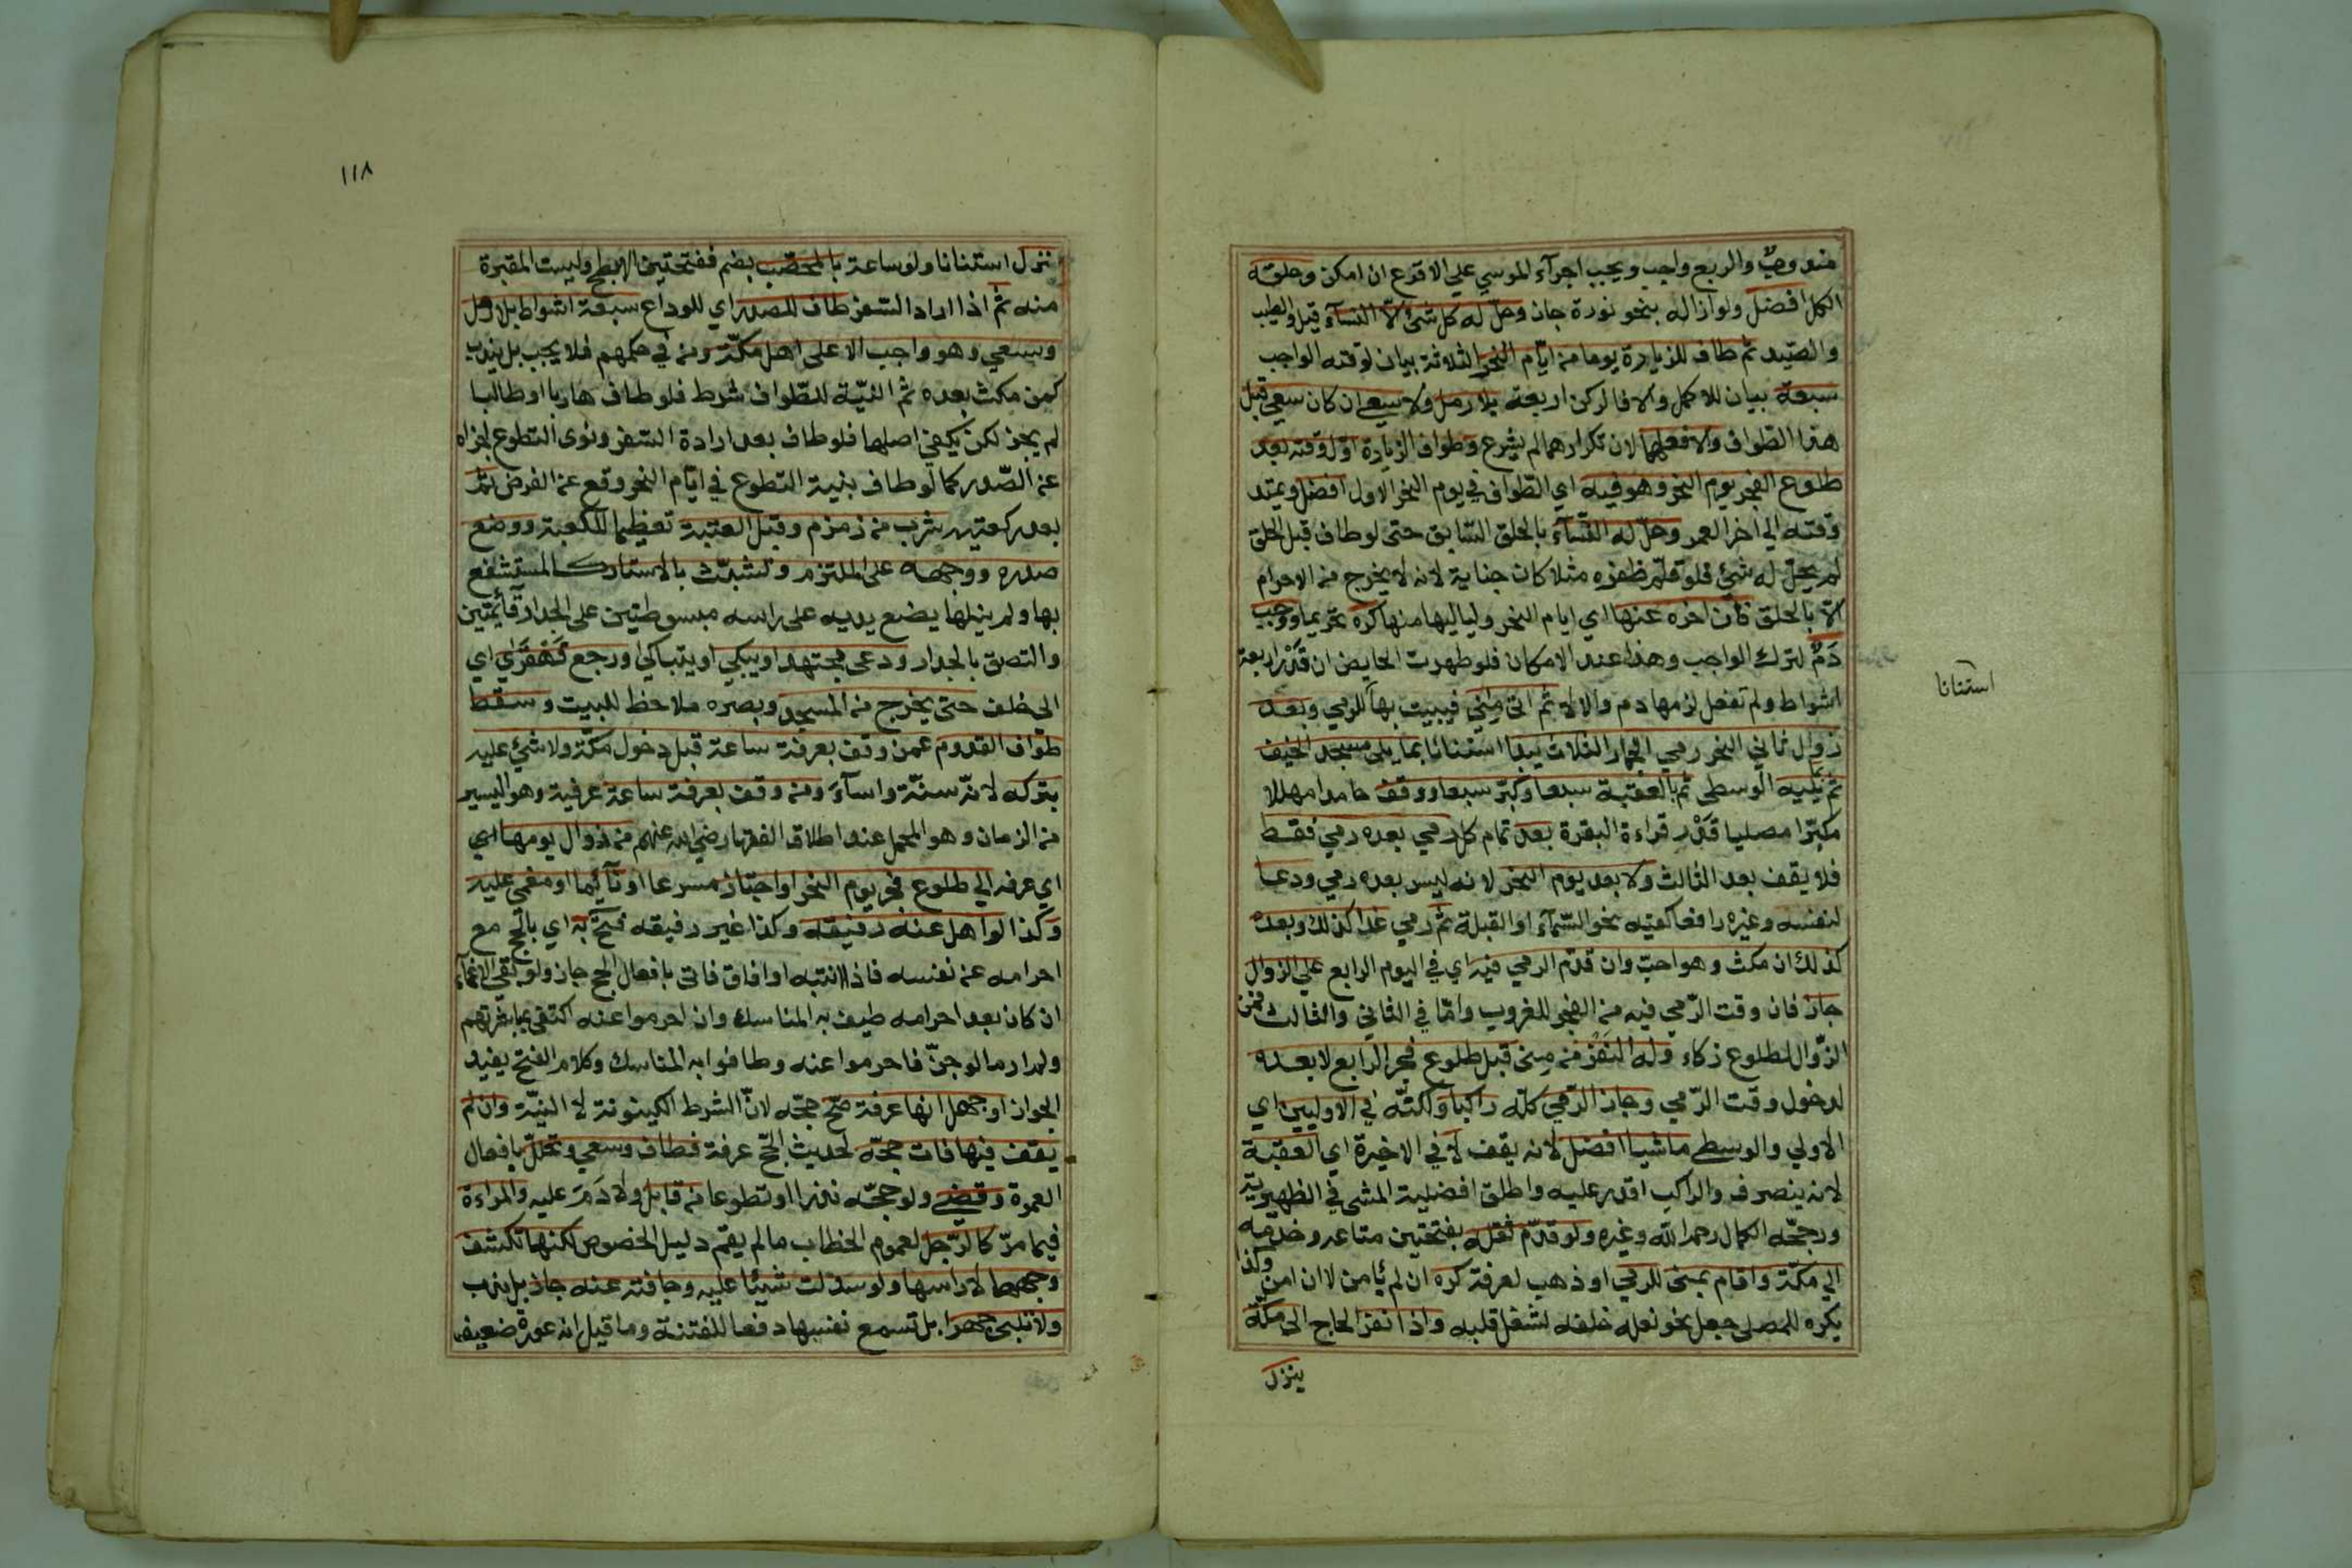 مندوب والربع واجب ويجب اجرآء الموسي علي الاقرع ان امكن وحلقه
الكل افضل ولو ازاله بنحو نورة جاز وحلّ له كل شئ الّا النسآء قيل والطيب
والصّيد ثم طاف للزيارة يوما من ايّام النحر الثلاثة بيان لوقته الواجب
سبعة بيان للاكمل والا فالركن اربعة بلا رمل ولا سعي ان كان سعي قبل
هذا الطواف والا فعلهما لان تكرارهما لم يشرع وطواف الزيارة اوّل وقته بعد
طلوع الفجر يوم النحر وهو فيه اي الطّواف في يوم النحر الاول افضل ويمتد
وقته الي اخر العمر وحلّ له النّسآء بالحلق السّابق حتي لو طاف قبل الحلق
لم يحلّ له شئ فلو قلّم ظفره مثلا كان جناية لانه لا يخرج من الاحرام
الّا بالحلق فان اخره عنها اي ايام النحر ولياليها منها كره تحريما ووجب
دَمٌ لترك الواجب وهذا عند الامكان فلو طهرت الحايض ان قَدْر اربعة
اشواط ولم تفعل لزمها دم والا لا ثم اتي مِني فيبيت بها للرمي وبعد
زوال ثاني النحر رمي الجمار الثلاث يبدا استنانا بما يلي مسجد الخيف
ثم بما يليه الوسطي ثم بالعقبة سبعا سبعا وكبّر ووقف حامدا مهللا
مكبّرا مصليا قَدْر قراءة البقرة بعد تمام كل رمي بعده رمي فقط
فلا يقف بعد الثالث ولا بعد يوم النحر لانه ليس بعده رمي ودعا
لنفسه وغيره رافعا كفيه نحو السّمآء او القبلة ثم رمي غدا كذلك وبعده
كذلك ان مكث وهو احبّ وان قدّم الرمي فيه اي في اليوم الرابع علي الزوال
جاز فان وقت الرّمي فيه من الفجر للغروب وامّا في الثاني والثالث فمن
الزّوال لطلوع ذكاء وله النَفْرُ من مِني قبل طلوع فجر الرابع لا بعده
لدخول وقت الرّمي وجاز الرّمي كلّه راكبا ولكنّه في الاوليين اي
الاولي والوسطي ماشيا افضل لانه يقف لا في الاخيرة اي العقبة
لانه ينصرف والراكب اقدر عليه واطلق افضلية المشي في الظهيرية
ورجّحه الكمال رحمه الله وغيره ولو قدّم ثقله بفتحتين متاعه وخدمه
الي مكّة واقام بمني للرمي او ذهب لعرفة كره ان لم يأمن لا ان امن وكذا
يكره للمصلي جعل نحو نعله خلفه لشغل قلبه واذا نفر الحاج الي مكّة
ينزل
استنانا
١١٨
نزل استنانا ولو ساعة بالمحصّب بضم ففتحتين الابطح وليست المقبرة
منه ثم اذا اراد السّفر طاف للصدر اي للوداع سبعة اشواط بلا رمل
وسعي وهو واجب الا علي اهل مكّة ومن في حكمهم فلا يجب بل يندب
كمن مكث بعده ثم النيّة للطّواف شرط فلو طاف هاربا او طالبا
لم يجز لكن يكفي اصلها فلو طاف بعد ارادة السّفر ونوي التطوع اجزاه
عن الصّدر كما لو طاف بنية التطوع في ايّام النحر وقع عن الفرض ثم
بعد ركعتيه شرب من زمزم وقبل العتبة تعظيما للكعبة ووضع
صدره ووجهه علي الملتزم وتشبّث بالاستار كالمستشفع
بها ولو لم ينلها يضع يديه علي راسه مبسوطتين علي الجدار قآئمتين
والتصق بالجدار ودعي مجتهدا ويبكي او يتباكي ورجع قَهْقَرَي اي
الي خلف حتي يخرج من المسجد وبصره ملاحظ للبيت وسقط
طواف القدوم عمن وقف بعرفة ساعة قبل دخول مكّة ولا شئ عليه
بتركه لانّه سنّة واسآء ومن وقف بعرفة ساعة عرفية وهو اليسير
من الزمان وهو المحمل عند اطلاق الفقهاء رضي الله عنهم من زوال يومها اي
اي عرفه الي طلوع فجر يوم النحر او اجتاز مسرعا او نآئما او مغمي عليه
وكذا لو اهل عنه رفيقه وكذا غير رفيقه فتح به اي بالحج مع
احرامه عن نفسه فاذا انتبه او افاق فاتي بافعال الحج جاز ولو بقي الاغمآء
ان كان بعد احرامه طيف به المناسك وان احرموا عنه اكتفي بمباشرتهم
ولم ار ما لو جنّ فاحرموا عنه وطافوا به المناسك وكلام الفتح يفيد
الجواز او جهل انها عرفة صّح حجّه لانّ الشرط الكينونة لا النيّة وان لم
يقف فيها فات حجّه لحديث الحّج عرفة فطاف وسعي وتحلّل بافعال
العمرة وقضي ولو حجّه نذرا او تطوعا من قابل ولا دَمَ عليه والمراءة
فيما مرّ كالرّجل لعموم الخطاب ما لم يقم دليل الخصوص لكنها تكشف
وجهها لا راسها ولو سدلت شيئا عليه وجافته عنه جاز بل يندب
ولا تلبي جهرا بل تسمع نفسها دفعا للفتنة وما قيل انه عورة ضعيف